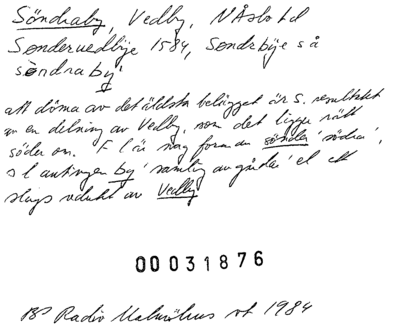 Söndraby, Vedby, N Åsbo hd
Sønderuedbÿe 1584, Søndrbÿe s å
söndraby
att döma av det äldsta belägget är S. resultatet
av en delning av Vedby, som det ligger rätt
söder om. F l är nog formen sönder 'södra',
s l antingen by 'samling av gårder' el ett
slags redukt av Vedby
00031876
BP Radio Malmöhus vt 1984